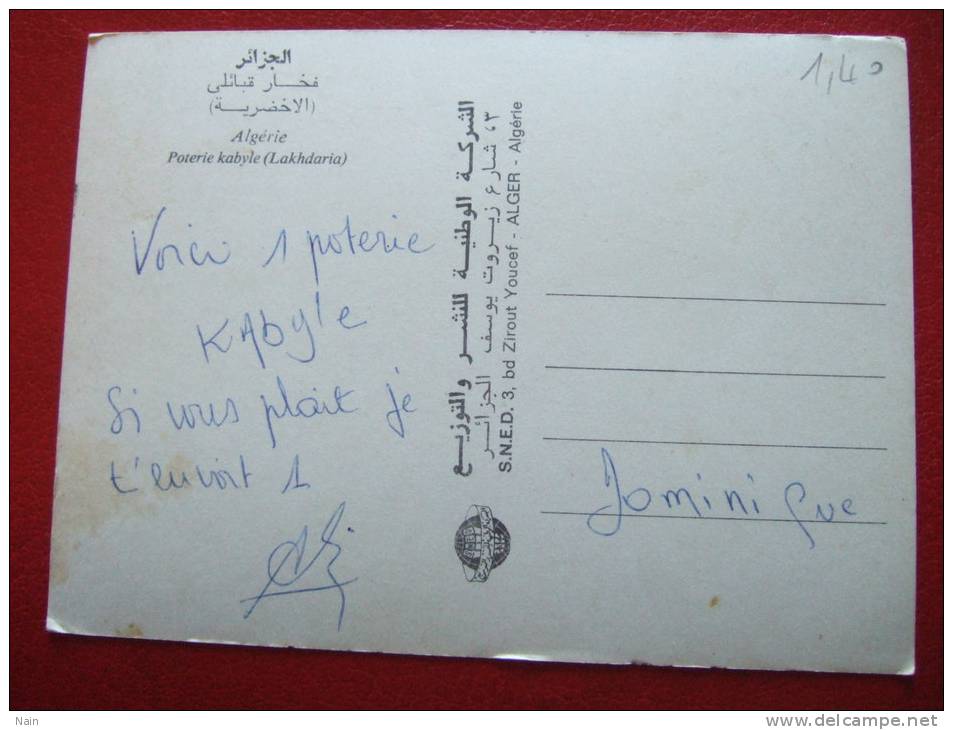 الجزائر
فخار قبائلي
(الاخضرية)
Algérie
Poterie kabyle (Lakhdaria)
1,40
Voici 1 poterie
KAbyle
Si vous plait je
t'envoit 1
الشركة الوطنية للنشر والتوزيع
٣، شارع زيروت يوسف الجزائر
S.N.E.D. 3, bd Zirout Youcef - ALGER - Algérie
Dominique
Nain
www.delcampe.net